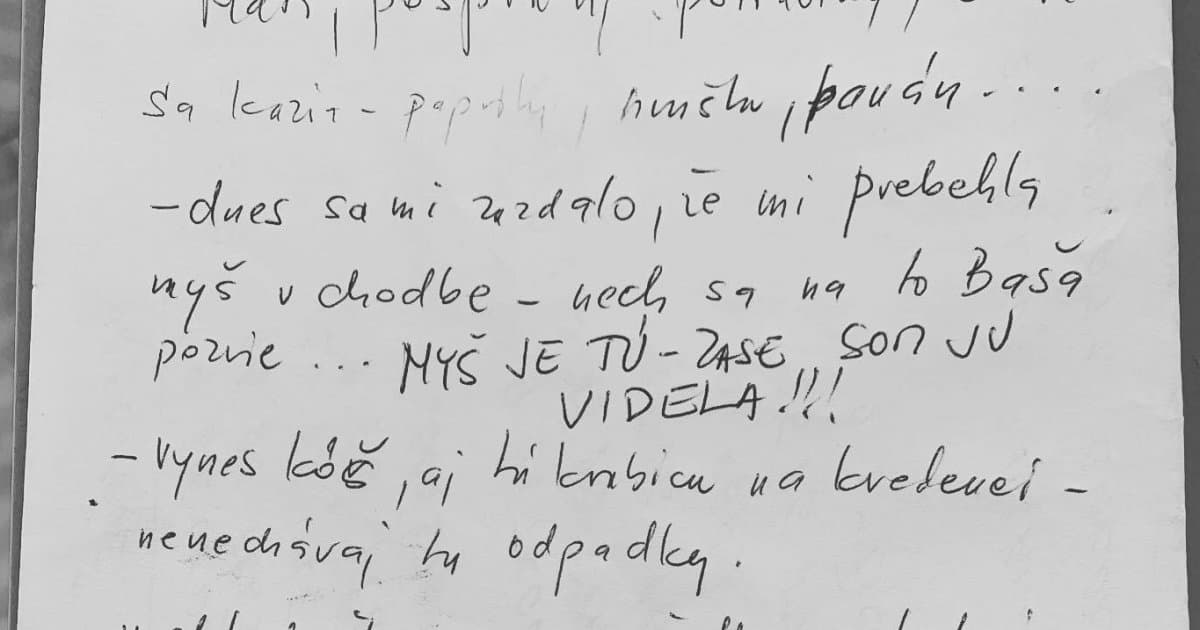 sa kazia - papriky, hruška, banán....
- dnes sa mi zazdalo, že mi prebehla
myš v chodbe - nech sa na to Baša
pozrie ... MYŠ JE TÚ - ZASE SOM JU
VIDELA!!!
- vynes kôš, aj tú krabicu na kredenci -
nenechávaj tu odpadky.